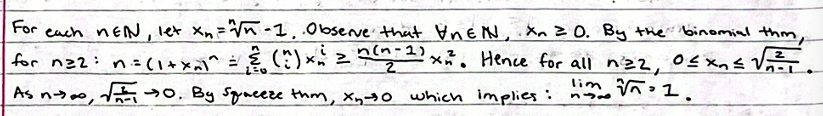 For each n∈ℕ, let xₙ = ⁿ√n - 1. Observe that ∀n∈ℕ, xₙ ≥ 0. By the binomial thm,
for n≥2: n = (1+xₙ)ⁿ = Σᵢ₌₀ⁿ (n i) xₙⁱ ≥ n(n-1)/2 xₙ². Hence for all n≥2, 0 ≤ xₙ ≤ √(2/(n-1)).
As n→∞, √(2/(n-1)) → 0. By squeeze thm, xₙ→0 which implies: lim n→∞ ⁿ√n = 1.